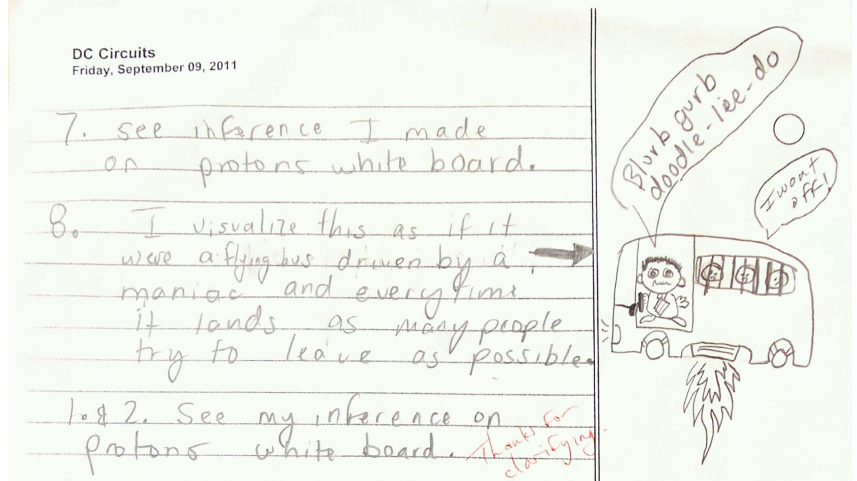 DC Circuits
Friday, September 09, 2011
7. See inference I made
on protons white board.
8. I visualize this as if it
were a flying bus driven by a
maniac and everytime
it lands as many people
try to leave as possible.
1.&2. See my inference on
protons white board.
Thanks for
clarifying.
Blurb gurb
doodle-lee-do
I want
off!